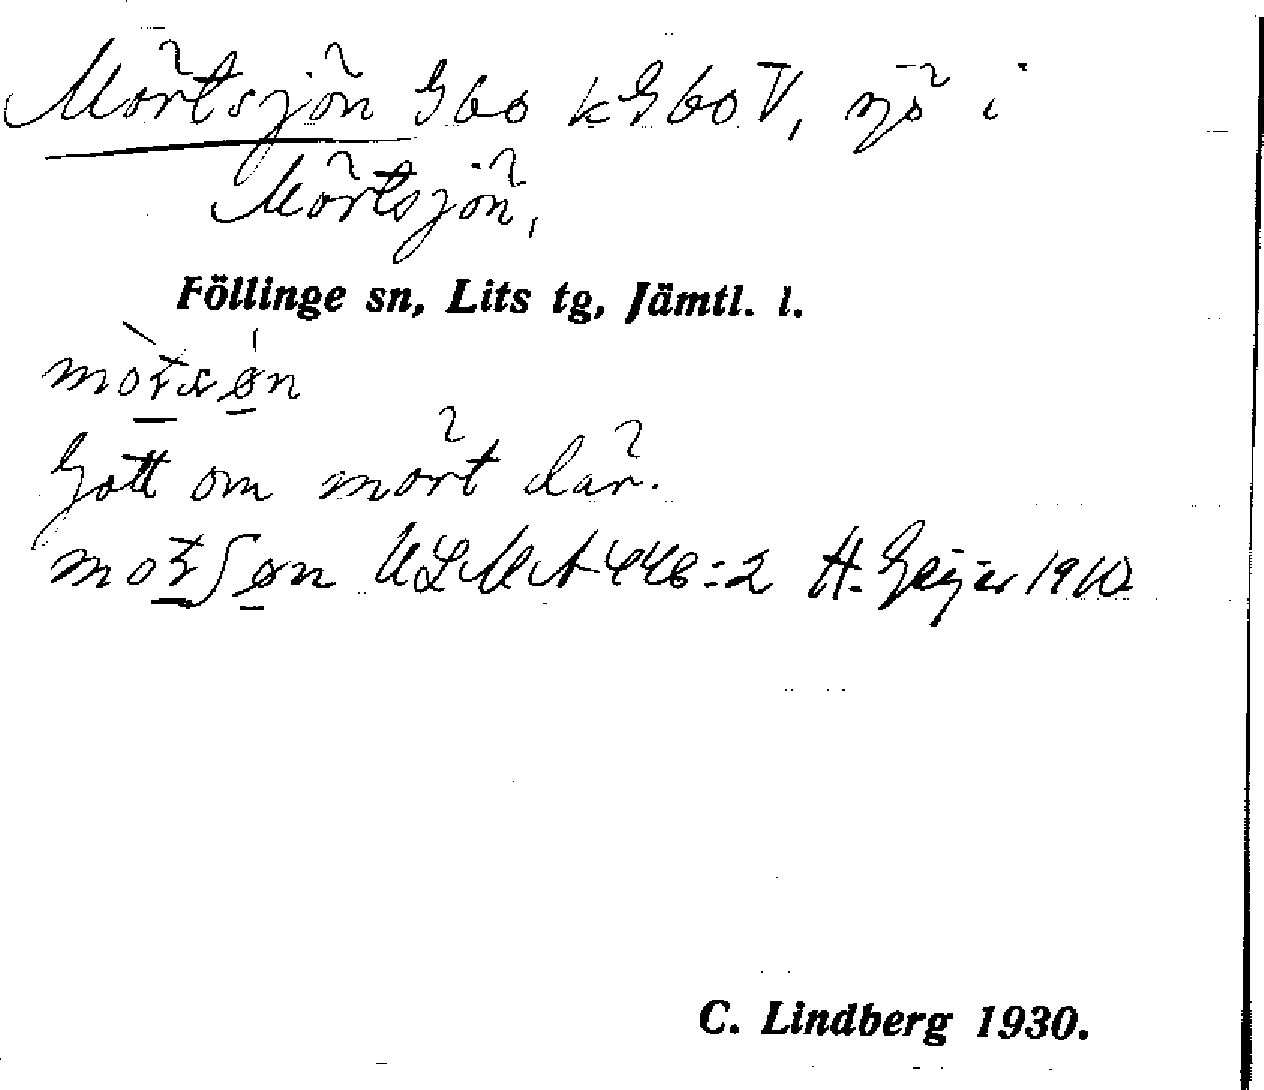 Mörtsjön Gbo kGboV, sjö i
Mörtsjön,
Föllinge sn, Lits tg, Jämtl. l.
Gott om mört där.
ULMA 446:2 H. Geijer 1910
C. Lindberg 1930.